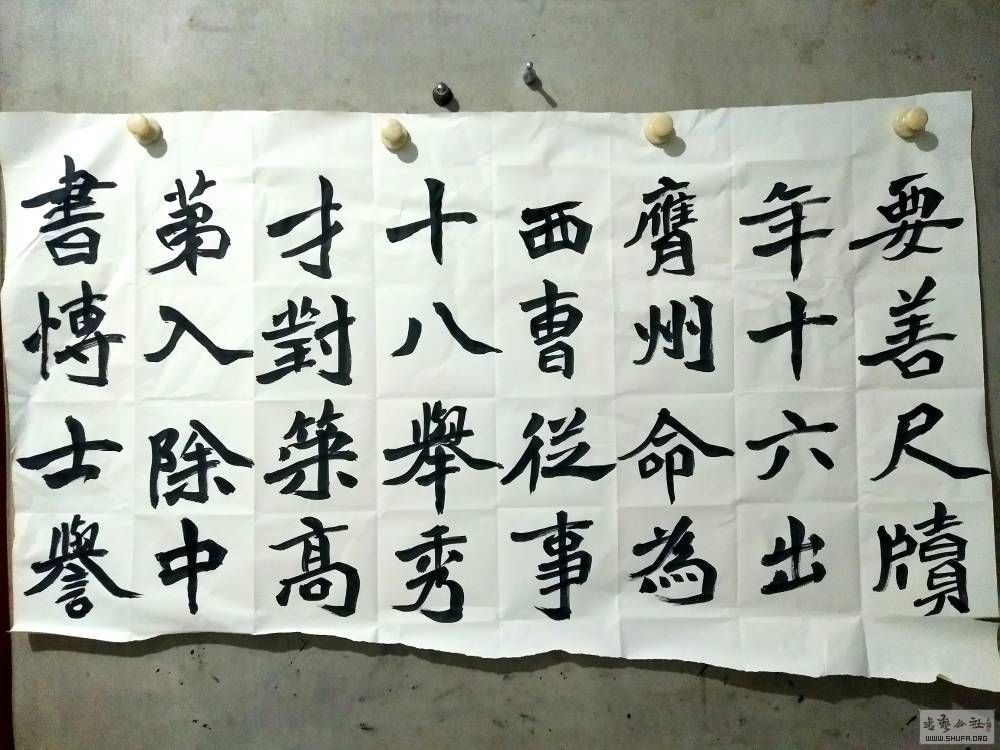 要善尺牘
年十六出
膺州命為
西曹從事
十八舉秀
才對策高
第入除中
書博士譽
书艺公社
WWW.SHUFA.ORG